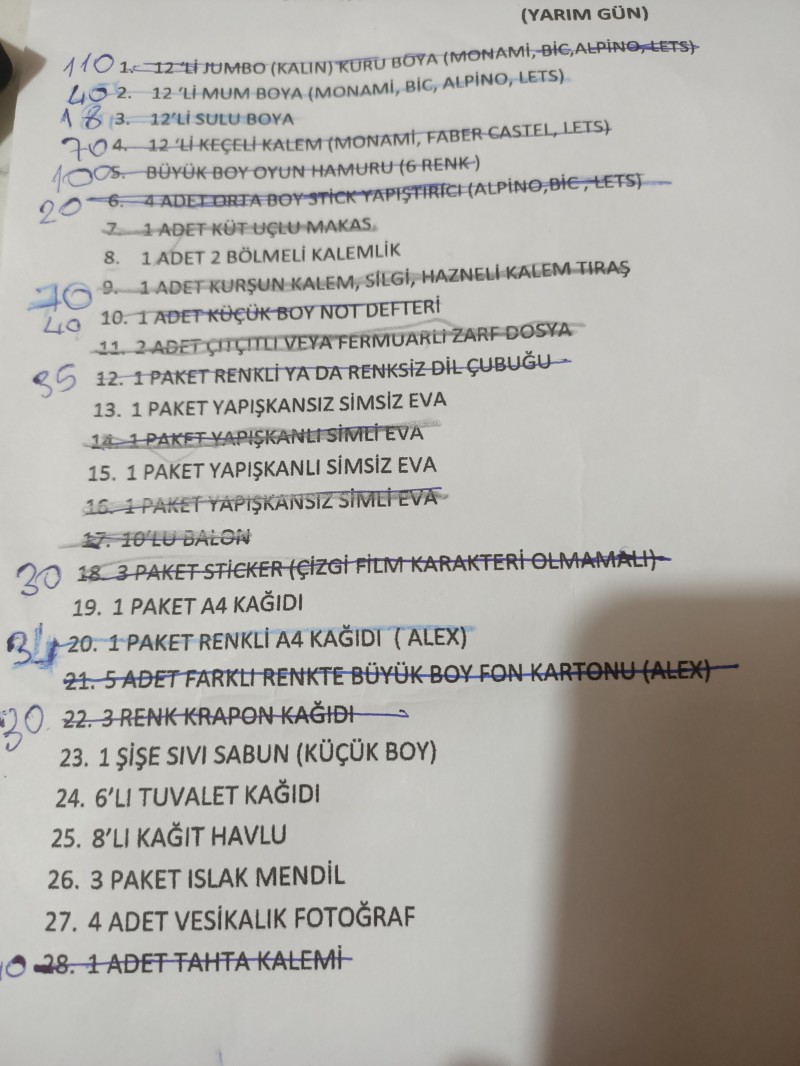 (YARIM GÜN)
110 1. 12 'Lİ JUMBO (KALIN) KURU BOYA (MONAMİ, BİC,ALPİNO, LETS)
40 2. 12 'Lİ MUM BOYA (MONAMİ, BİC, ALPİNO, LETS)
18 3. 12'Lİ SULU BOYA
70 4. 12 'Lİ KEÇELİ KALEM (MONAMİ, FABER CASTEL, LETS)
100 5. BÜYÜK BOY OYUN HAMURU (6 RENK )
20 6. 4 ADET ORTA BOY STİCK YAPIŞTIRICI (ALPİNO,BİC , LETS)
7. 1 ADET KÜT UÇLU MAKAS
8. 1 ADET 2 BÖLMELİ KALEMLİK
70 9. 1 ADET KURŞUN KALEM, SİLGİ, HAZNELİ KALEM TIRAŞ
40 10. 1 ADET KÜÇÜK BOY NOT DEFTERİ
11. 2 ADET ÇITÇITLI VEYA FERMUARLI ZARF DOSYA
35 12. 1 PAKET RENKLİ YA DA RENKSİZ DİL ÇUBUĞU
13. 1 PAKET YAPIŞKANSIZ SİMSİZ EVA
14. 1 PAKET YAPIŞKANLI SİMLİ EVA
15. 1 PAKET YAPIŞKANLI SİMSİZ EVA
16. 1 PAKET YAPIŞKANSIZ SİMLİ EVA
17. 10'LU BALON
30 18. 3 PAKET STİCKER (ÇİZGİ FİLM KARAKTERİ OLMAMALI)
19. 1 PAKET A4 KAĞIDI
34 20. 1 PAKET RENKLİ A4 KAĞIDI ( ALEX)
21. 5 ADET FARKLI RENKTE BÜYÜK BOY FON KARTONU (ALEX)
30 22. 3 RENK KRAPON KAĞIDI
23. 1 ŞİŞE SIVI SABUN (KÜÇÜK BOY)
24. 6'LI TUVALET KAĞIDI
25. 8'LI KAĞIT HAVLU
26. 3 PAKET ISLAK MENDİL
27. 4 ADET VESİKALIK FOTOĞRAF
28. 1 ADET TAHTA KALEMİ